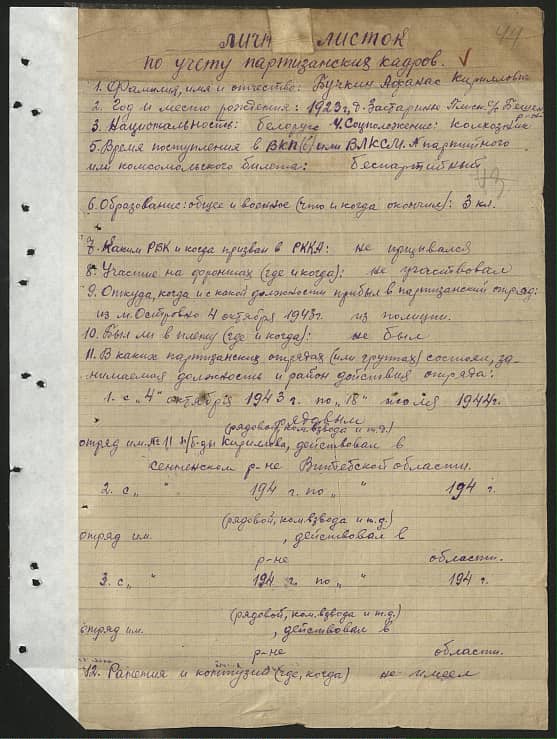 44
ЛИЧН ЛИСТОК
по учету партизанских кадров. ✓
1. Фамилия, имя и отчество: Бучкин Афанас Кириллович
2. Год и место рождения: 1923 г, д. Застаринье с/с Бешен. р-на
3. Национальность: белорус 4. Соцположение: колхозник
5. Время поступления в ВКП(б) или ВЛКСМ. № партийного
или комсомольского билета: беспартийный
6. Образование: общее и военное (что и когда окончил): 3 кл.
7. Каким РВК и когда призван в РККА: не призывался
8. Участие на фронтах (где и когда): не участвовал
9. Откуда, когда и с какой должности прибыл в партизанский отряд:
из м. Островно 4 октября 1943 г. из полиции.
10. Был ли в плену (где и когда): не был
11. В каких партизанских отрядах (или группах) состоял, за-
нимаемая должность и район действия отряда:
1. с „4" октября 1943 г. по „18" июля 1944 г.
рядовым
(рядовой, ком. взвода и т.д.)
отряд им. № 11 п/б-ды Кирилова, действовал в
Сенненском р-не Витебской области.
2. с „ " 194 г. по „ " 194 г.
(рядовой, ком. взвода и т.д.)
отряд им. , действовал в
р-не области.
3. с „ " 194 г. по „ " 194 г.
(рядовой, ком. взвода и т.д.)
отряд им. , действовал в
р-не области.
12. Ранения и контузии (где, когда) не имел